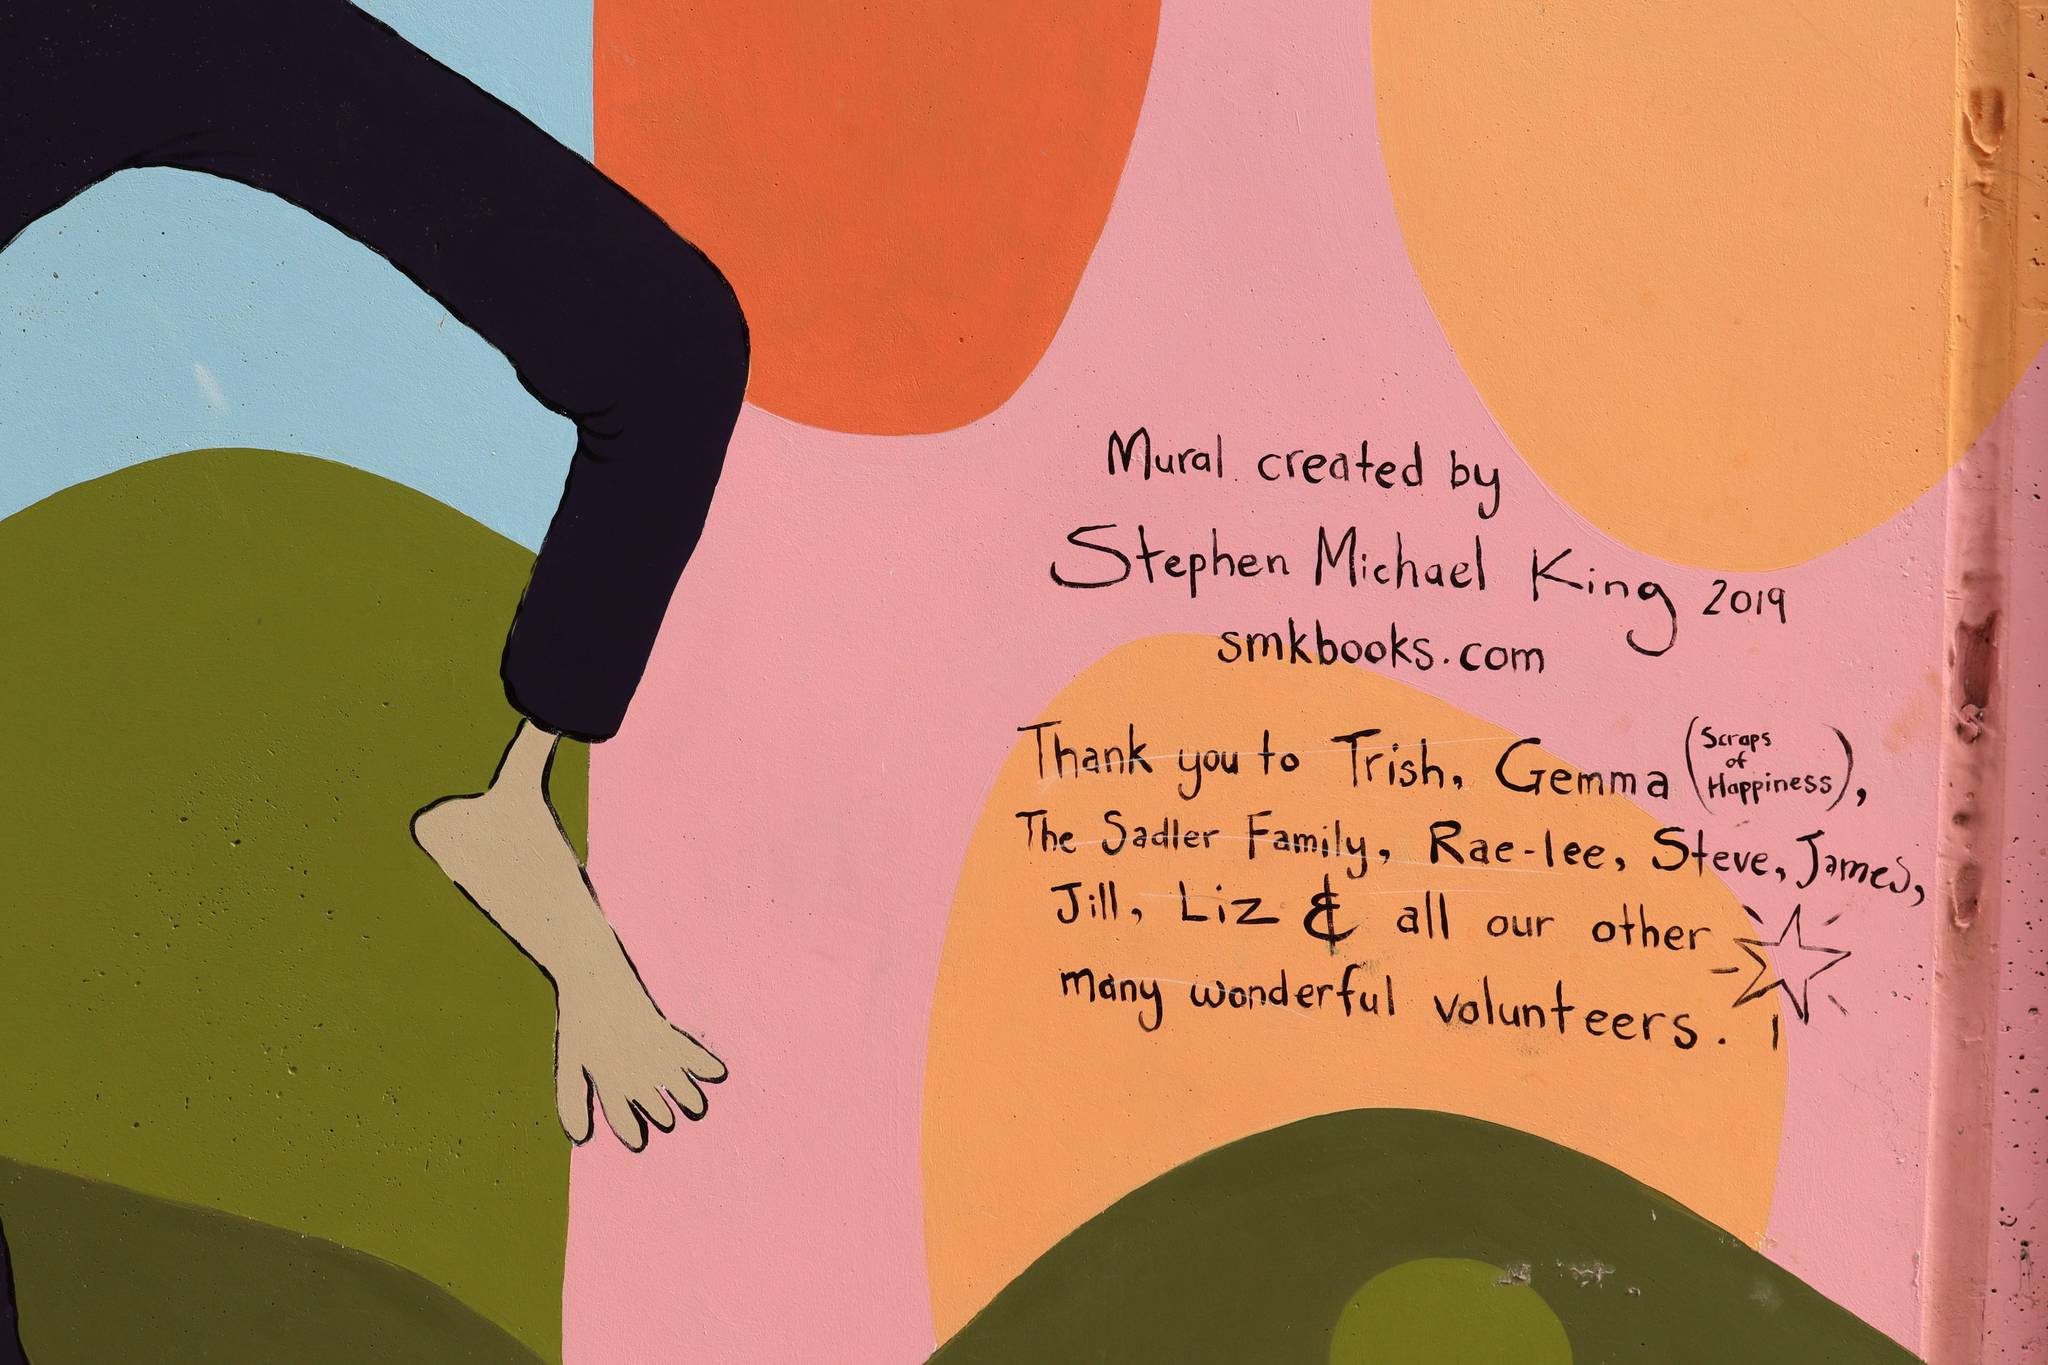 Mural created by
Stephen Michael King 2019
smkbooks.com
Thank you to Trish, Gemma (Scraps of Happiness),
The Sadler Family, Rae-lee, Steve, James,
Jill, Liz & all our other
many wonderful volunteers.